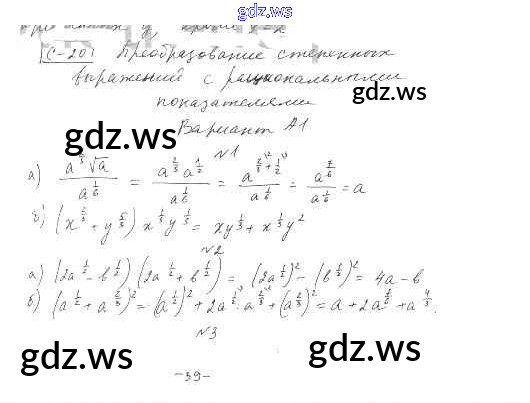 gdz.ws
С-20. Преобразование степенных
выражений с рациональными
показателями
gdz.ws
Вариант А1
gdz.ws
gdz.ws
№1
а) (a^{2/3} √a) / a^{1/6} = (a^{2/3} a^{1/2}) / a^{1/6} = a^{2/3 + 1/2} / a^{1/6} = a^{7/6} / a^{1/6} = a
б) x^{1/3} y^{1/3} = xy^{1/3} + x^{1/3} y^2
№2
а) (2a^{1/2} - b^{1/2}) (2a^{1/2} + b^{1/2}) = (2a^{1/2})^2 - (b^{1/2})^2 = 4a - b
б) (a^{1/2} + a^{2/3})^2 = (a^{1/2})^2 + 2a^{1/2} · a^{2/3} + (a^{2/3})^2 = a + 2a^{7/6} + a^{4/3}.
№3
gdz.ws
gdz.ws
-39-